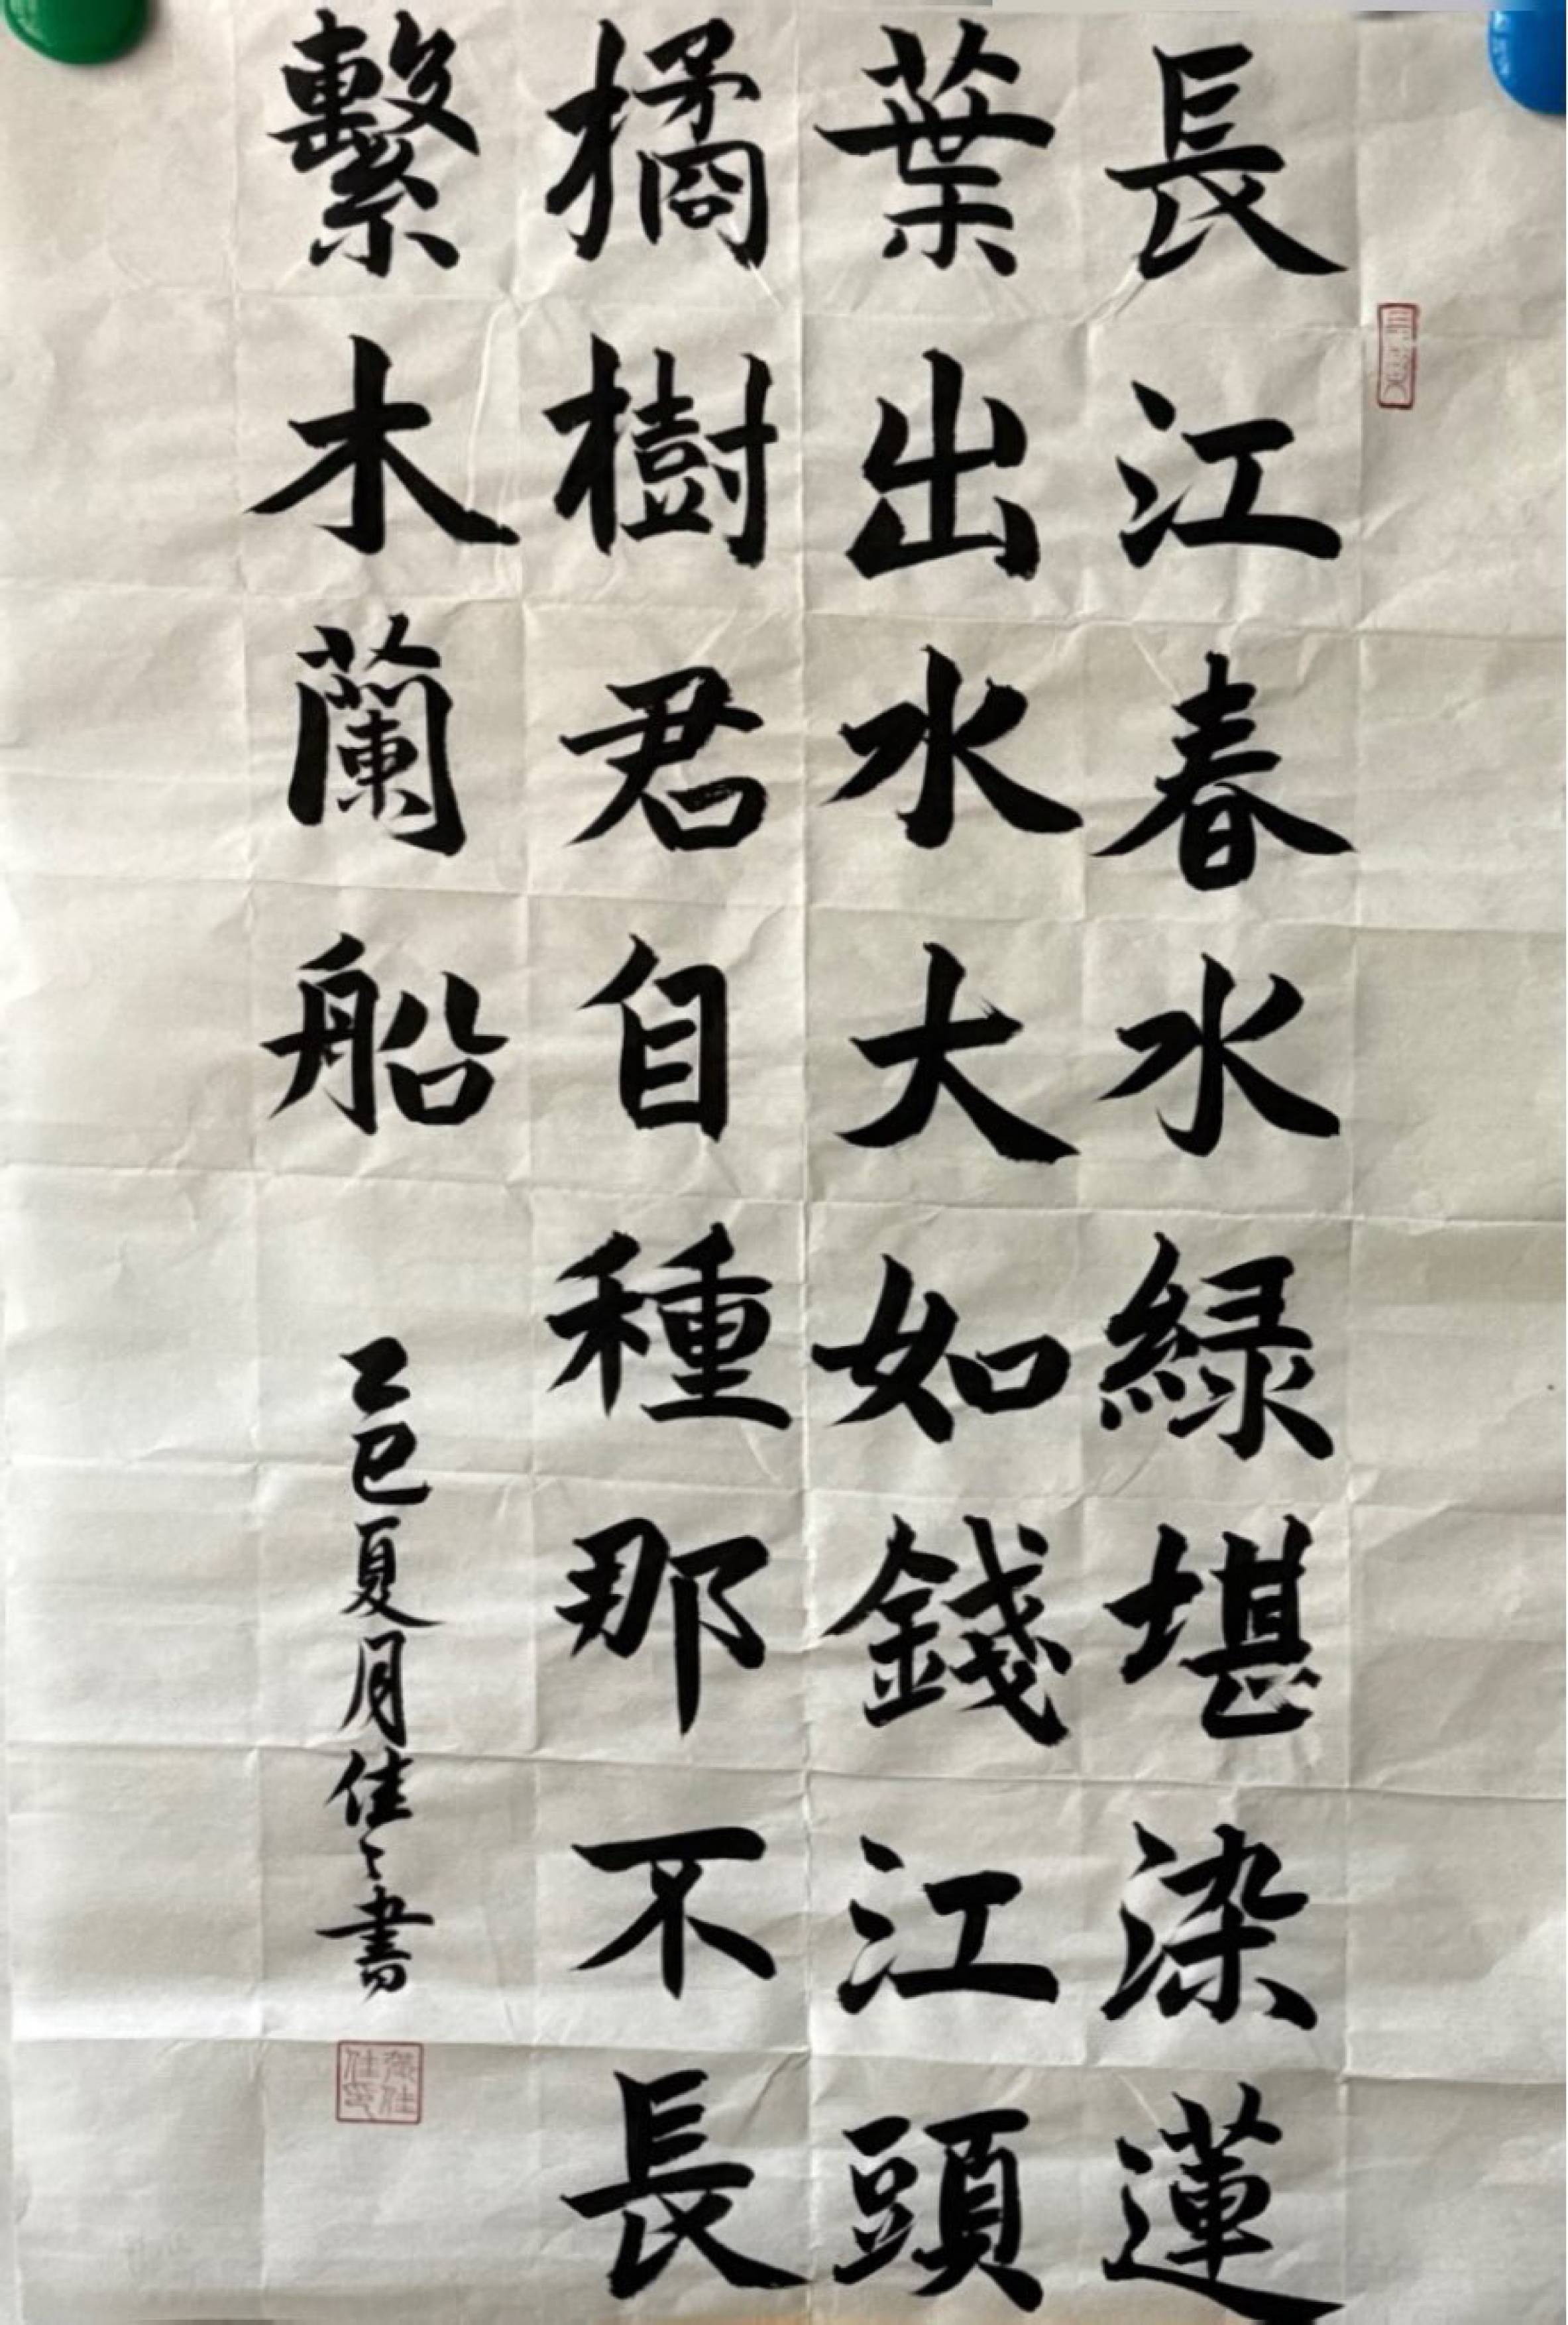 長江春水緑堪染蓮
葉出水大如錢江頭
橘樹君自種那不長
繫木蘭船
乙巳夏月佳〻書